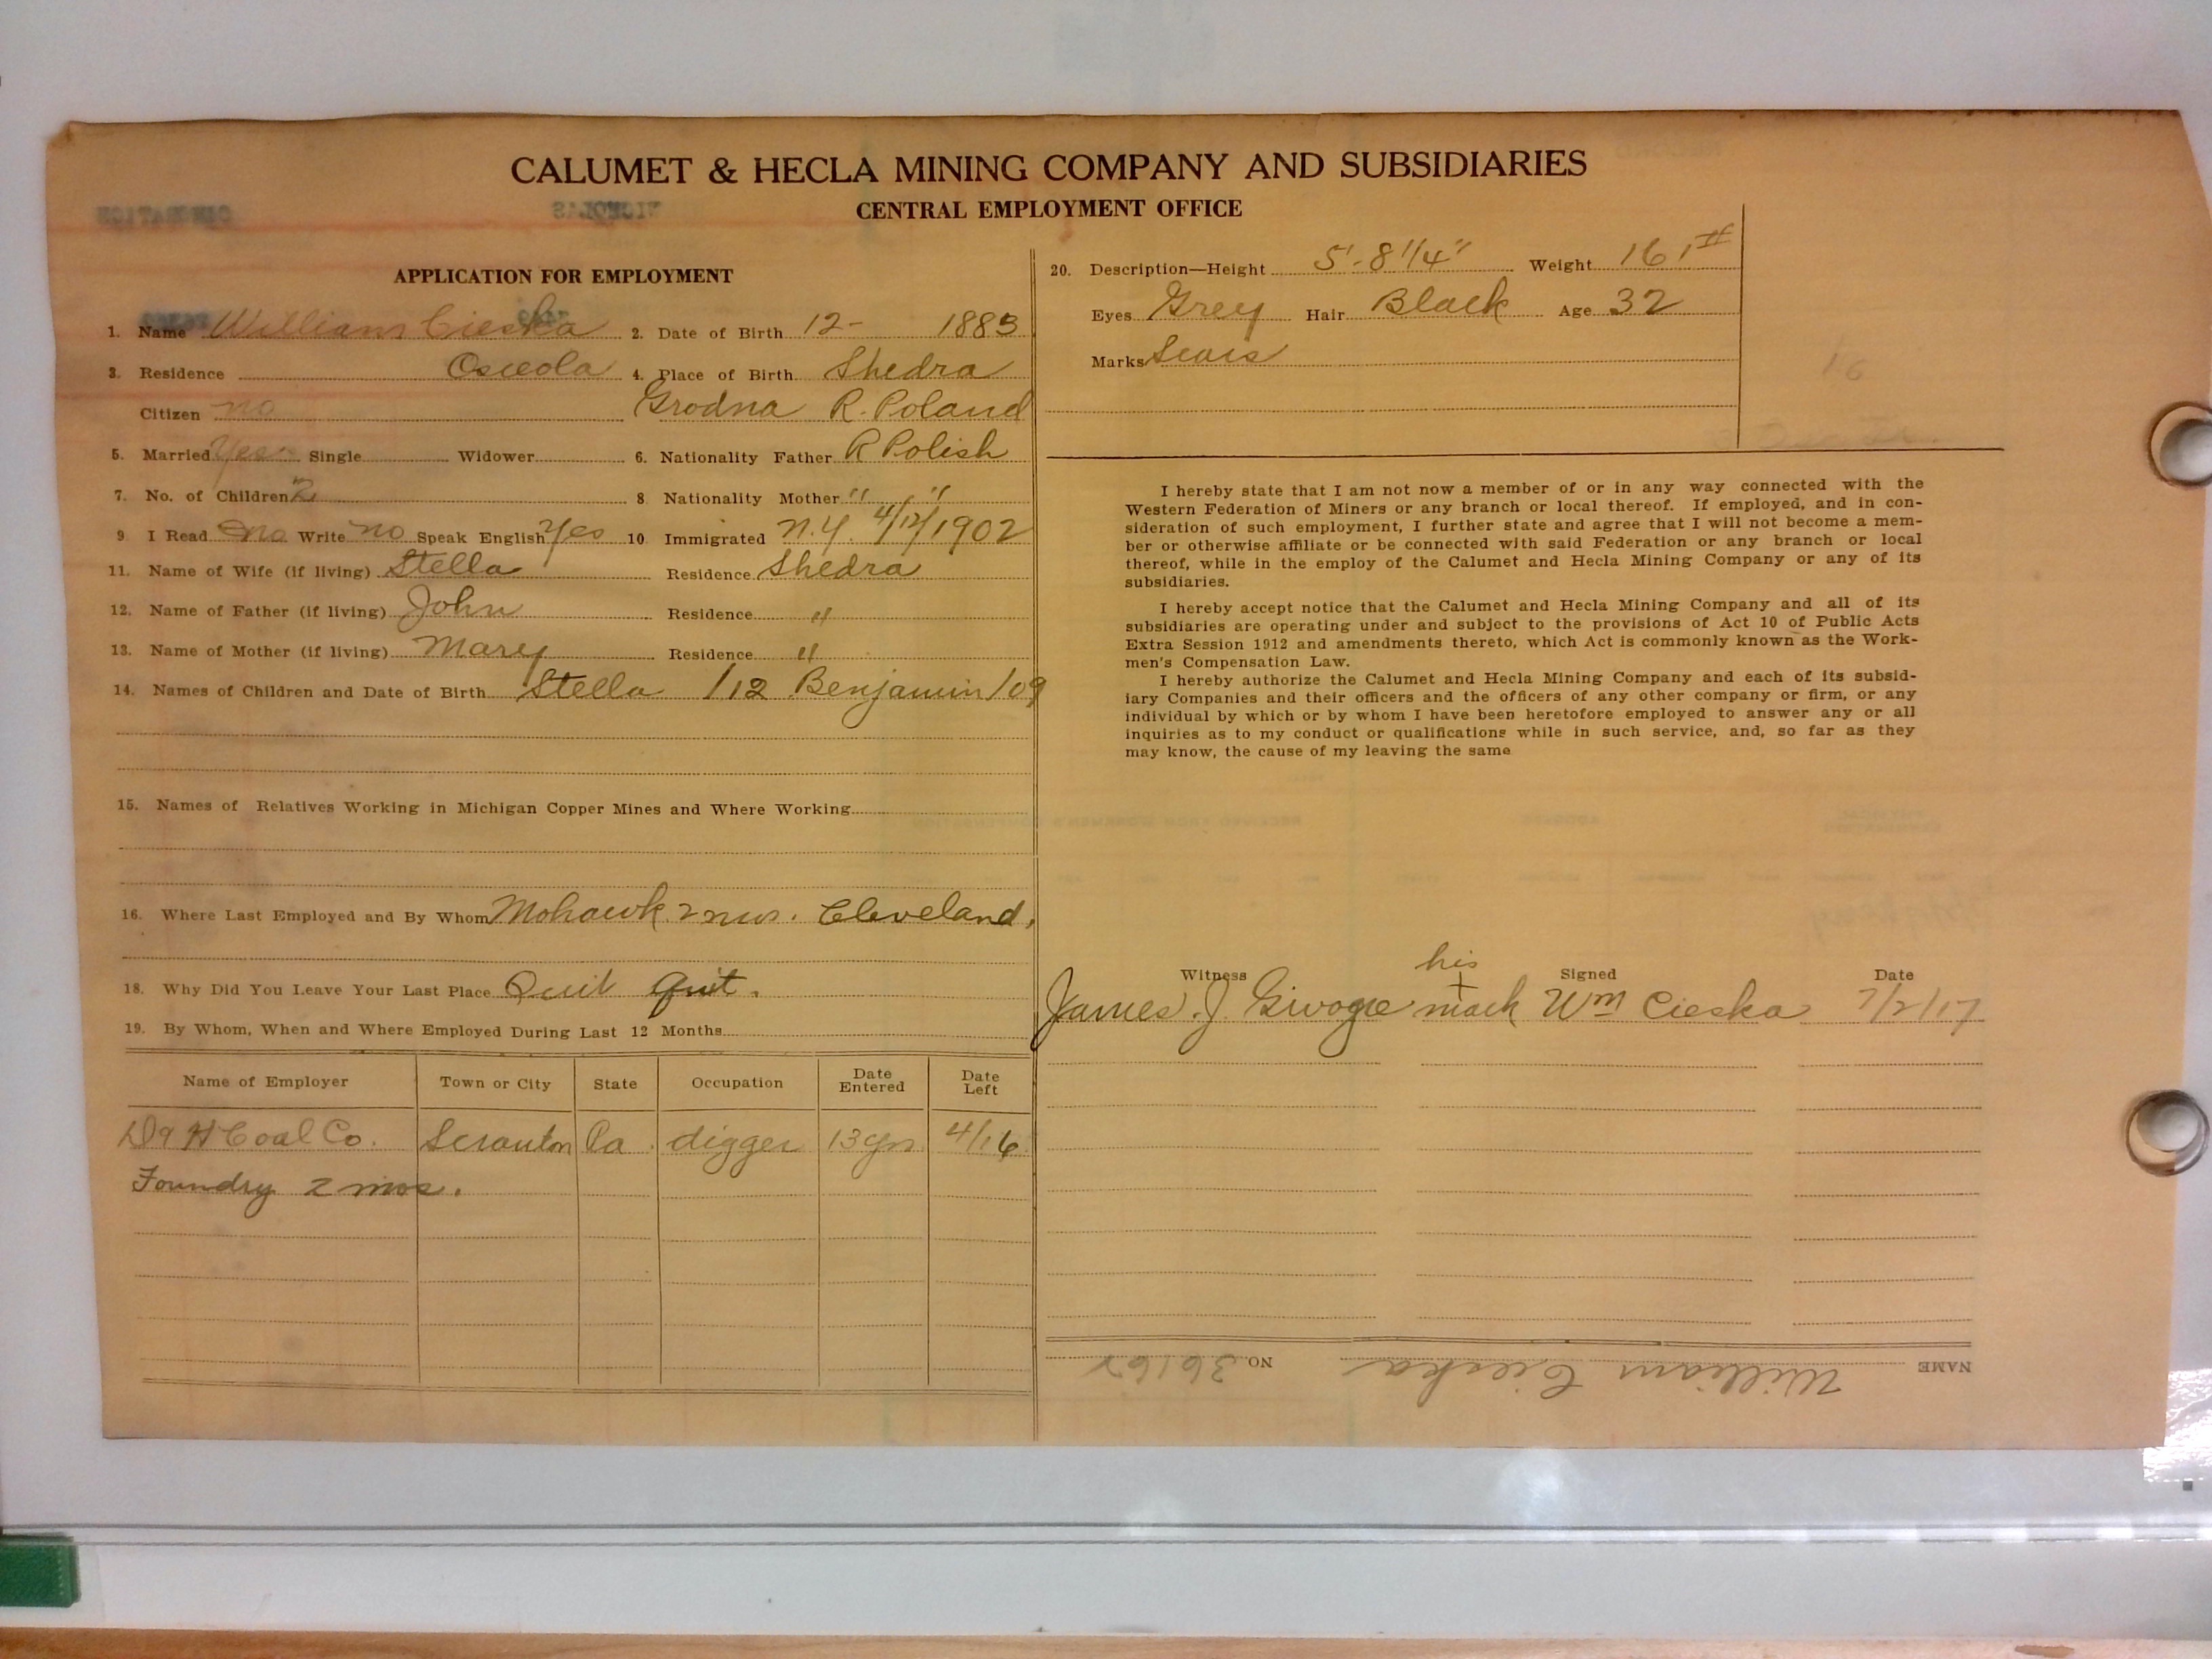 CALUMET & HECLA MINING COMPANY AND SUBSIDIARIES
CENTRAL EMPLOYMENT OFFICE
APPLICATION FOR EMPLOYMENT
1. Name William Cieska 2. Date of Birth 12- 1883
3. Residence Osceola 4. Place of Birth Shedra
Citizen no Grodna R. Poland
5. Married Yes Single Widower 6. Nationality Father R Polish
7. No. of Children 2 8 Nationality Mother " "
9 I Read no Write no Speak English Yes 10 Immigrated N.Y. 4/12/1902
11. Name of Wife (if living) Stella Residence Shedra
12. Name of Father (if living) John Residence "
13. Name of Mother (if living) Mary Residence "
14. Names of Children and Date of Birth Stella /12 Benjamin /09
15. Names of Relatives Working in Michigan Copper Mines and Where Working
16. Where Last Employed and By Whom Mohawk 2 Cleveland,
18. Why Did You Leave Your Last Place Quit quit.
19. By Whom, When and Where Employed During Last 12 Months
Name of Employer Town or City State Occupation Date Entered Date Left
D & H Coal Co. Scranton Pa. digger 13 yrs 4/16
Foundry 2 mos.
20. Description—Height 5'-8 1/4" Weight 161#
Eyes Grey Hair Black Age 32
Marks Scars
I hereby state that I am not now a member of or in any way connected with the
Western Federation of Miners or any branch or local thereof. If employed, and in con-
sideration of such employment, I further state and agree that I will not become a mem-
ber or otherwise affiliate or be connected with said Federation or any branch or local
thereof, while in the employ of the Calumet and Hecla Mining Company or any of its
subsidiaries.
I hereby accept notice that the Calumet and Hecla Mining Company and all of its
subsidiaries are operating under and subject to the provisions of Act 10 of Public Acts
Extra Session 1912 and amendments thereto, which Act is commonly known as the Work-
men's Compensation Law.
I hereby authorize the Calumet and Hecla Mining Company and each of its subsid-
iary Companies and their officers and the officers of any other company or firm, or any
individual by which or by whom I have been heretofore employed to answer any or all
inquiries as to my conduct or qualifications while in such service, and, so far as they
may know, the cause of my leaving the same
his
Witness Signed Date
James J. + mark Wm Cieska 7/2/17
NAME William Cieska NO. 36162